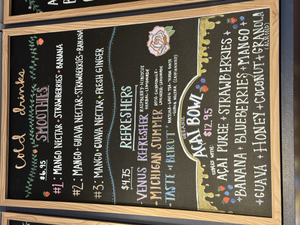 cold drinks
SMOOTHIES
$6.95
#1: MANGO NECTAR • STRAWBERRIES • BANANA
#2: MANGO • GUAVA NECTAR • STRAWBERRIES • BANANA
#3: MANGO • GUAVA NECTAR • FRESH GINGER
REFRESHERS
$4.75
VENUS REFRESHER
• MICHIGAN SUMMER
• TASTE of BEIRUT
AÇAI BOWL
$12.95
AÇAI PUREE + STRAWBERRIES +
+ BANANA + BLUEBERRIES + MANGO
+ GUAVA + HONEY + COCONUT + GRANOLA